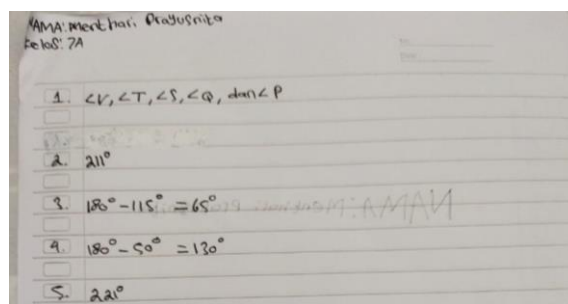 NAMA: Menthari Prayusnita
Kelas: 7A
1. ∠V, ∠T, ∠S, ∠Q, dan ∠P
2. 211°
3. 180° - 115° = 65°
4. 180° - 50° = 130°
5. 221°